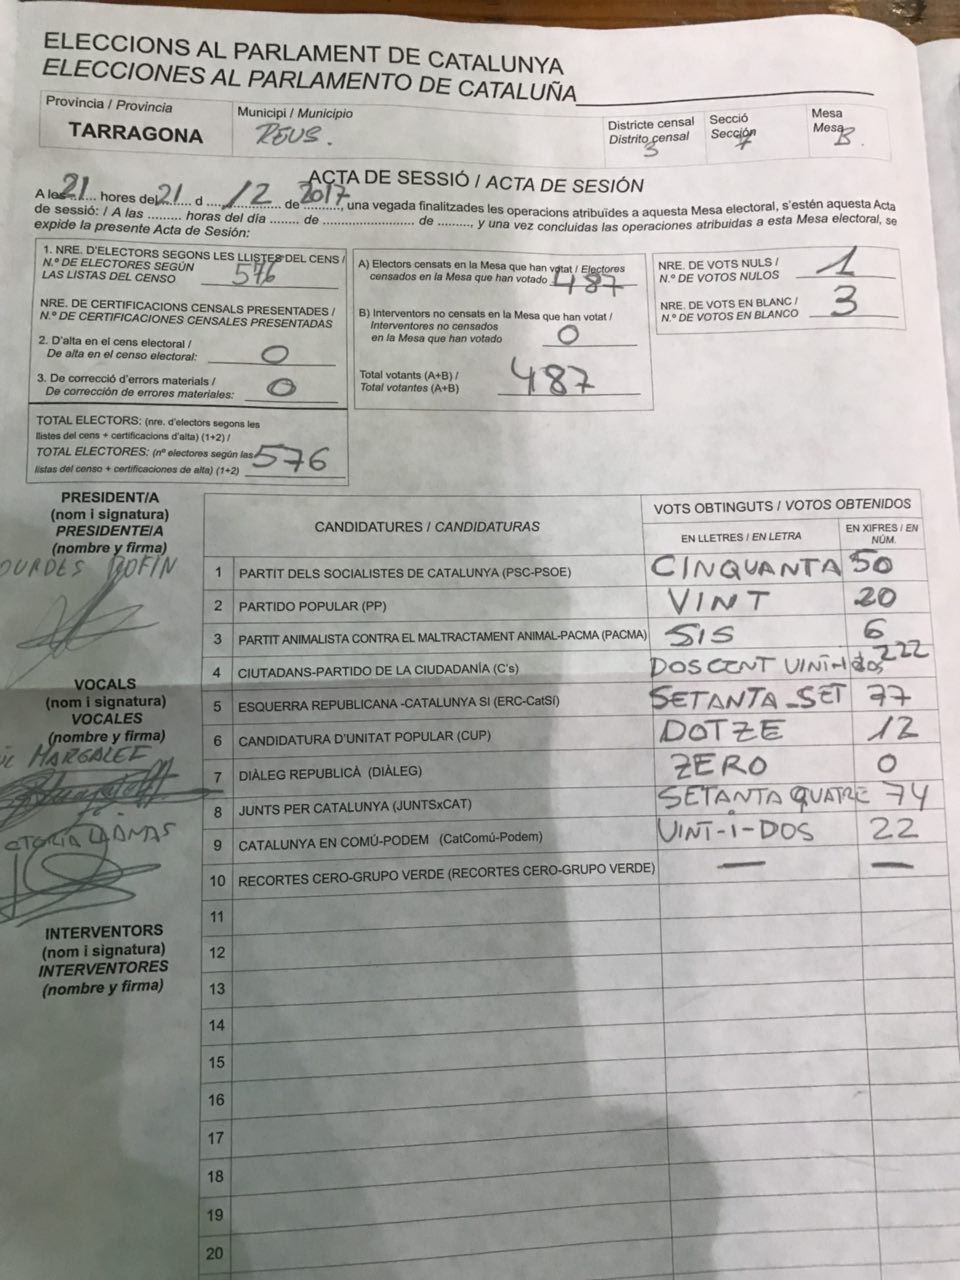 ELECCIONS AL PARLAMENT DE CATALUNYA
ELECCIONES AL PARLAMENTO DE CATALUÑA
Provincia / Provincia
TARRAGONA
Municipi / Municipio
REUS.
Districte censal
Distrito censal
3
Secció
Sección
7
Mesa
Mesa
B.
ACTA DE SESSIÓ / ACTA DE SESIÓN
A les 21 hores del 21 d 12 de 2017, una vegada finalitzades les operacions atribuïdes a aquesta Mesa electoral, s'estén aquesta Acta
de sessió: / A las ......... horas del día ........ de ........................... de ........., y una vez concluidas las operaciones atribuidas a esta Mesa electoral, se
expide la presente Acta de Sesión:
1. NRE. D'ELECTORS SEGONS LES LLISTES DEL CENS /
N.º DE ELECTORES SEGÚN
LAS LISTAS DEL CENSO 576
NRE. DE CERTIFICACIONS CENSALS PRESENTADES /
N.º DE CERTIFICACIONES CENSALES PRESENTADAS
2. D'alta en el cens electoral /
De alta en el censo electoral: 0
3. De correcció d'errors materials /
De corrección de errores materiales: 0
TOTAL ELECTORS: (nre. d'electors segons les
llistes del cens + certificacions d'alta) (1+2) /
TOTAL ELECTORES: (nº electores según las
listas del censo + certificaciones de alta) (1+2) 576
A) Electors censats en la Mesa que han votat / Electores
censados en la Mesa que han votado 487
B) Interventors no censats en la Mesa que han votat /
Interventores no censados
en la Mesa que han votado 0
Total votants (A+B) /
Total votantes (A+B) 487
NRE. DE VOTS NULS /
N.º DE VOTOS NULOS 1
NRE. DE VOTS EN BLANC /
N.º DE VOTOS EN BLANCO 3
PRESIDENT/A
(nom i signatura)
PRESIDENTE/A
(nombre y firma)
OURDES BOFIN
VOCALS
(nom i signatura)
VOCALES
(nombre y firma)
MARGALEF
CTORIA LLAMAS
INTERVENTORS
(nom i signatura)
INTERVENTORES
(nombre y firma)
CANDIDATURES / CANDIDATURAS
VOTS OBTINGUTS / VOTOS OBTENIDOS
EN LLETRES / EN LETRA
EN XIFRES / EN
NÚM.
1 PARTIT DELS SOCIALISTES DE CATALUNYA (PSC-PSOE) CINQUANTA 50
2 PARTIDO POPULAR (PP) VINT 20
3 PARTIT ANIMALISTA CONTRA EL MALTRACTAMENT ANIMAL-PACMA (PACMA) SIS 6
4 CIUTADANS-PARTIDO DE LA CIUDADANÍA (C's) DOSCENT VINT-I-dOS 222
5 ESQUERRA REPUBLICANA -CATALUNYA SI (ERC-CatSí) SETANTA-SET 77
6 CANDIDATURA D'UNITAT POPULAR (CUP) DOTZE 12
7 DIÀLEG REPUBLICÀ (DIÀLEG) ZERO 0
8 JUNTS PER CATALUNYA (JUNTSxCAT) SETANTA QUATRE 74
9 CATALUNYA EN COMÚ-PODEM (CatComú-Podem) VINT-i-DOS 22
10 RECORTES CERO-GRUPO VERDE (RECORTES CERO-GRUPO VERDE) — —
11
12
13
14
15
16
17
18
19
20